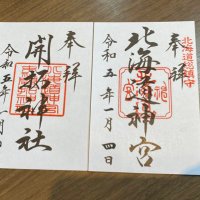 北海道総鎮守
奉拝
北海道神宮
令和五年一月四日
奉拝
開拓神社
令和五年一月四日